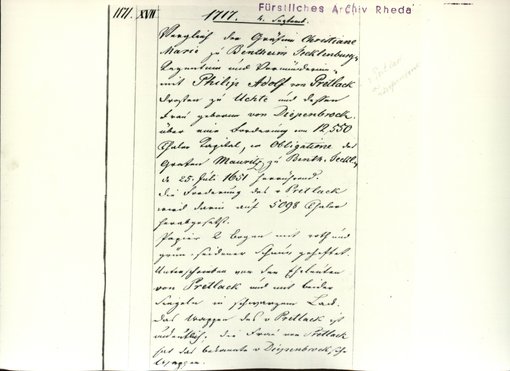 Fürstliches Archiv Rheda
1171. XVII. 1717. 4. Septemb.
Vergleich der Gräfin Christiane
Marie zu Bentheim Tecklenburg,
Regentin und Vormünderin,
mit Philip Adolf von Pretlack
Drosten zu Uchte und dessen
Frau geborene von Diepenbrock
über eine Forderung von 12,550
Thaler Capital, ex Obligatione des
Grafen Mauritz zu Benth. Teckl.
d. 25. Juli 1651 herrührend.
Die Forderung des v Pretlack
wird darin auf 5098 Thaler
herabgesetzt.
Papier 2 Bogen mit roth und
grün seidener Schnur geheftet.
Unterschrieben von den Eheleuten
von Pretlack und mit beider
Siegeln in schwarzem Lack.
Das Wappen des v Pretlack ist
undeutlich. die Frau von Pretlack
hat das bekannte v Diepenbrock'sche
Wappen.